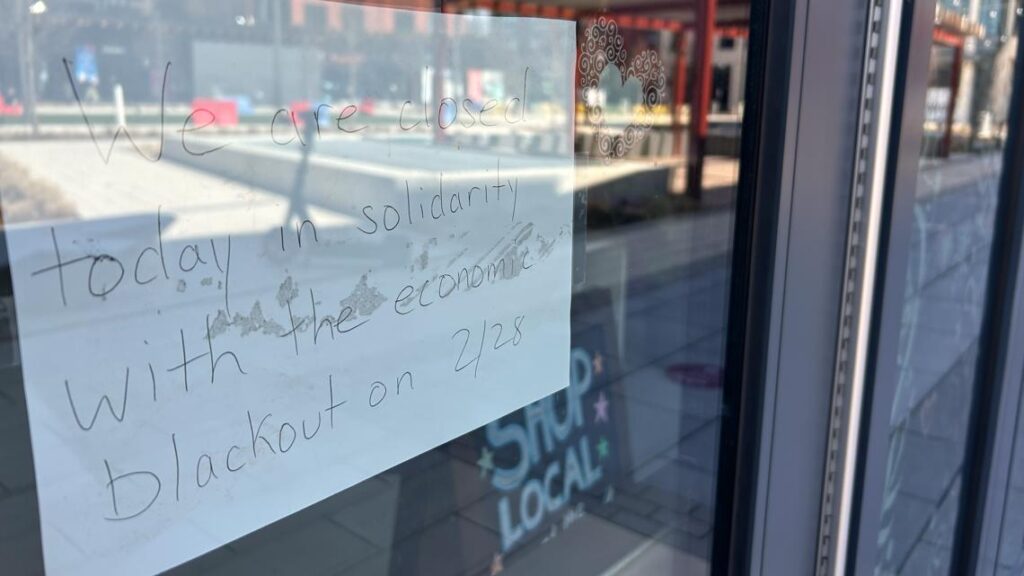 We are closed
today in solidarity
with the economic
blackout on 2/28
SHOP
LOCAL